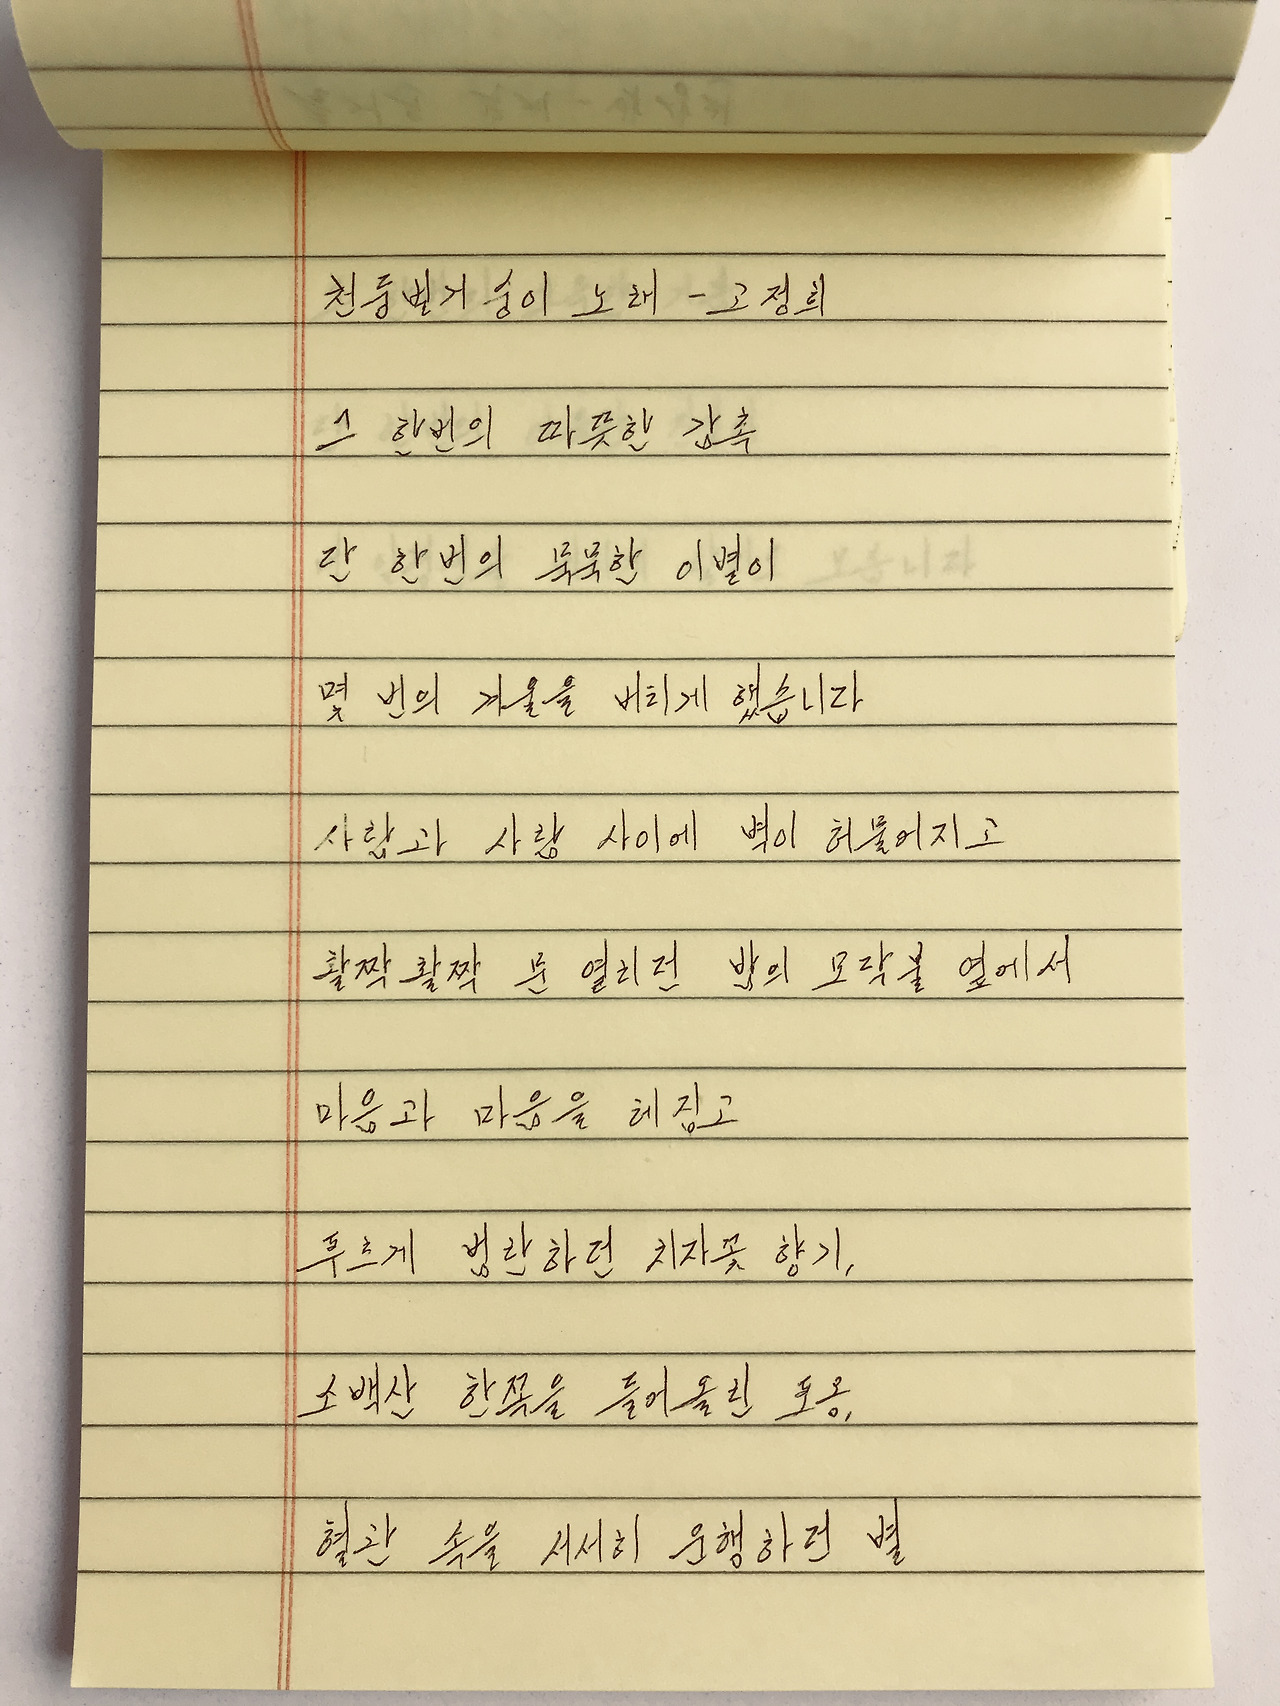 천둥벌거숭이 노래 - 고정희
한번의 따뜻한 감촉
단 한번의 묵묵한 이별이
몇 번의 겨울을 버티게 했습니다
사람과 사람 사이에 벽이 허물어지고
활짝 활짝 문 열리던 밤의 모닥불 옆에서
마음과 마음을 헤집고
푸르게 범람하던 치자꽃 향기,
소백산 한쪽을 들어올린 포옹,
혈관 속을 서서히 운행하던 별